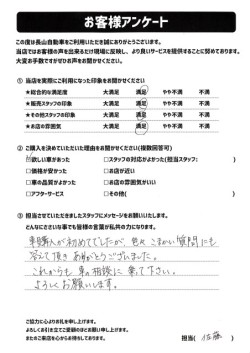 お客様アンケート
この度は長山自動車をご利用いただき誠にありがとうございます。
当店ではお客様の声を出来るだけ現場に反映し、より良いサービスを提供することに努めております。
大変お手数ですがぜひお声をお聞かせください。
① 当店を実際にご利用になった印象をお聞かせください
★総合的な満足度 大満足 満足 やや不満 不満
★販売スタッフの印象 大満足 満足 やや不満 不満
★その他スタッフの印象 大満足 満足 やや不満 不満
★お店の雰囲気 大満足 満足 やや不満 不満
② ご購入を決めていただいた理由をお聞かせください(複数回答可)
□欲しい車があった □スタッフの対応がよかった(担当スタッフ: )
□価格が安かった □お店が近い
□車の品質がよかった □お店の雰囲気がいい
□アフターサービス □その他( )
③ 担当させていただきましたスタッフにメッセージをお願いいたします。
どんなにささいな事でも皆様の言葉が私共の力になります。
車購入が初めてでしたが、色々こまかい質問にも
答えて頂きありがとうございました。
これからも車の相談に乗て下さい。
よろしくお願いします。
ご協力に心よりお礼を申し上げます。
よろしくお引き立てご愛顧のほどお願い申し上げます。
またのご来店を心からお待ちしております。
担当( 佐藤 )